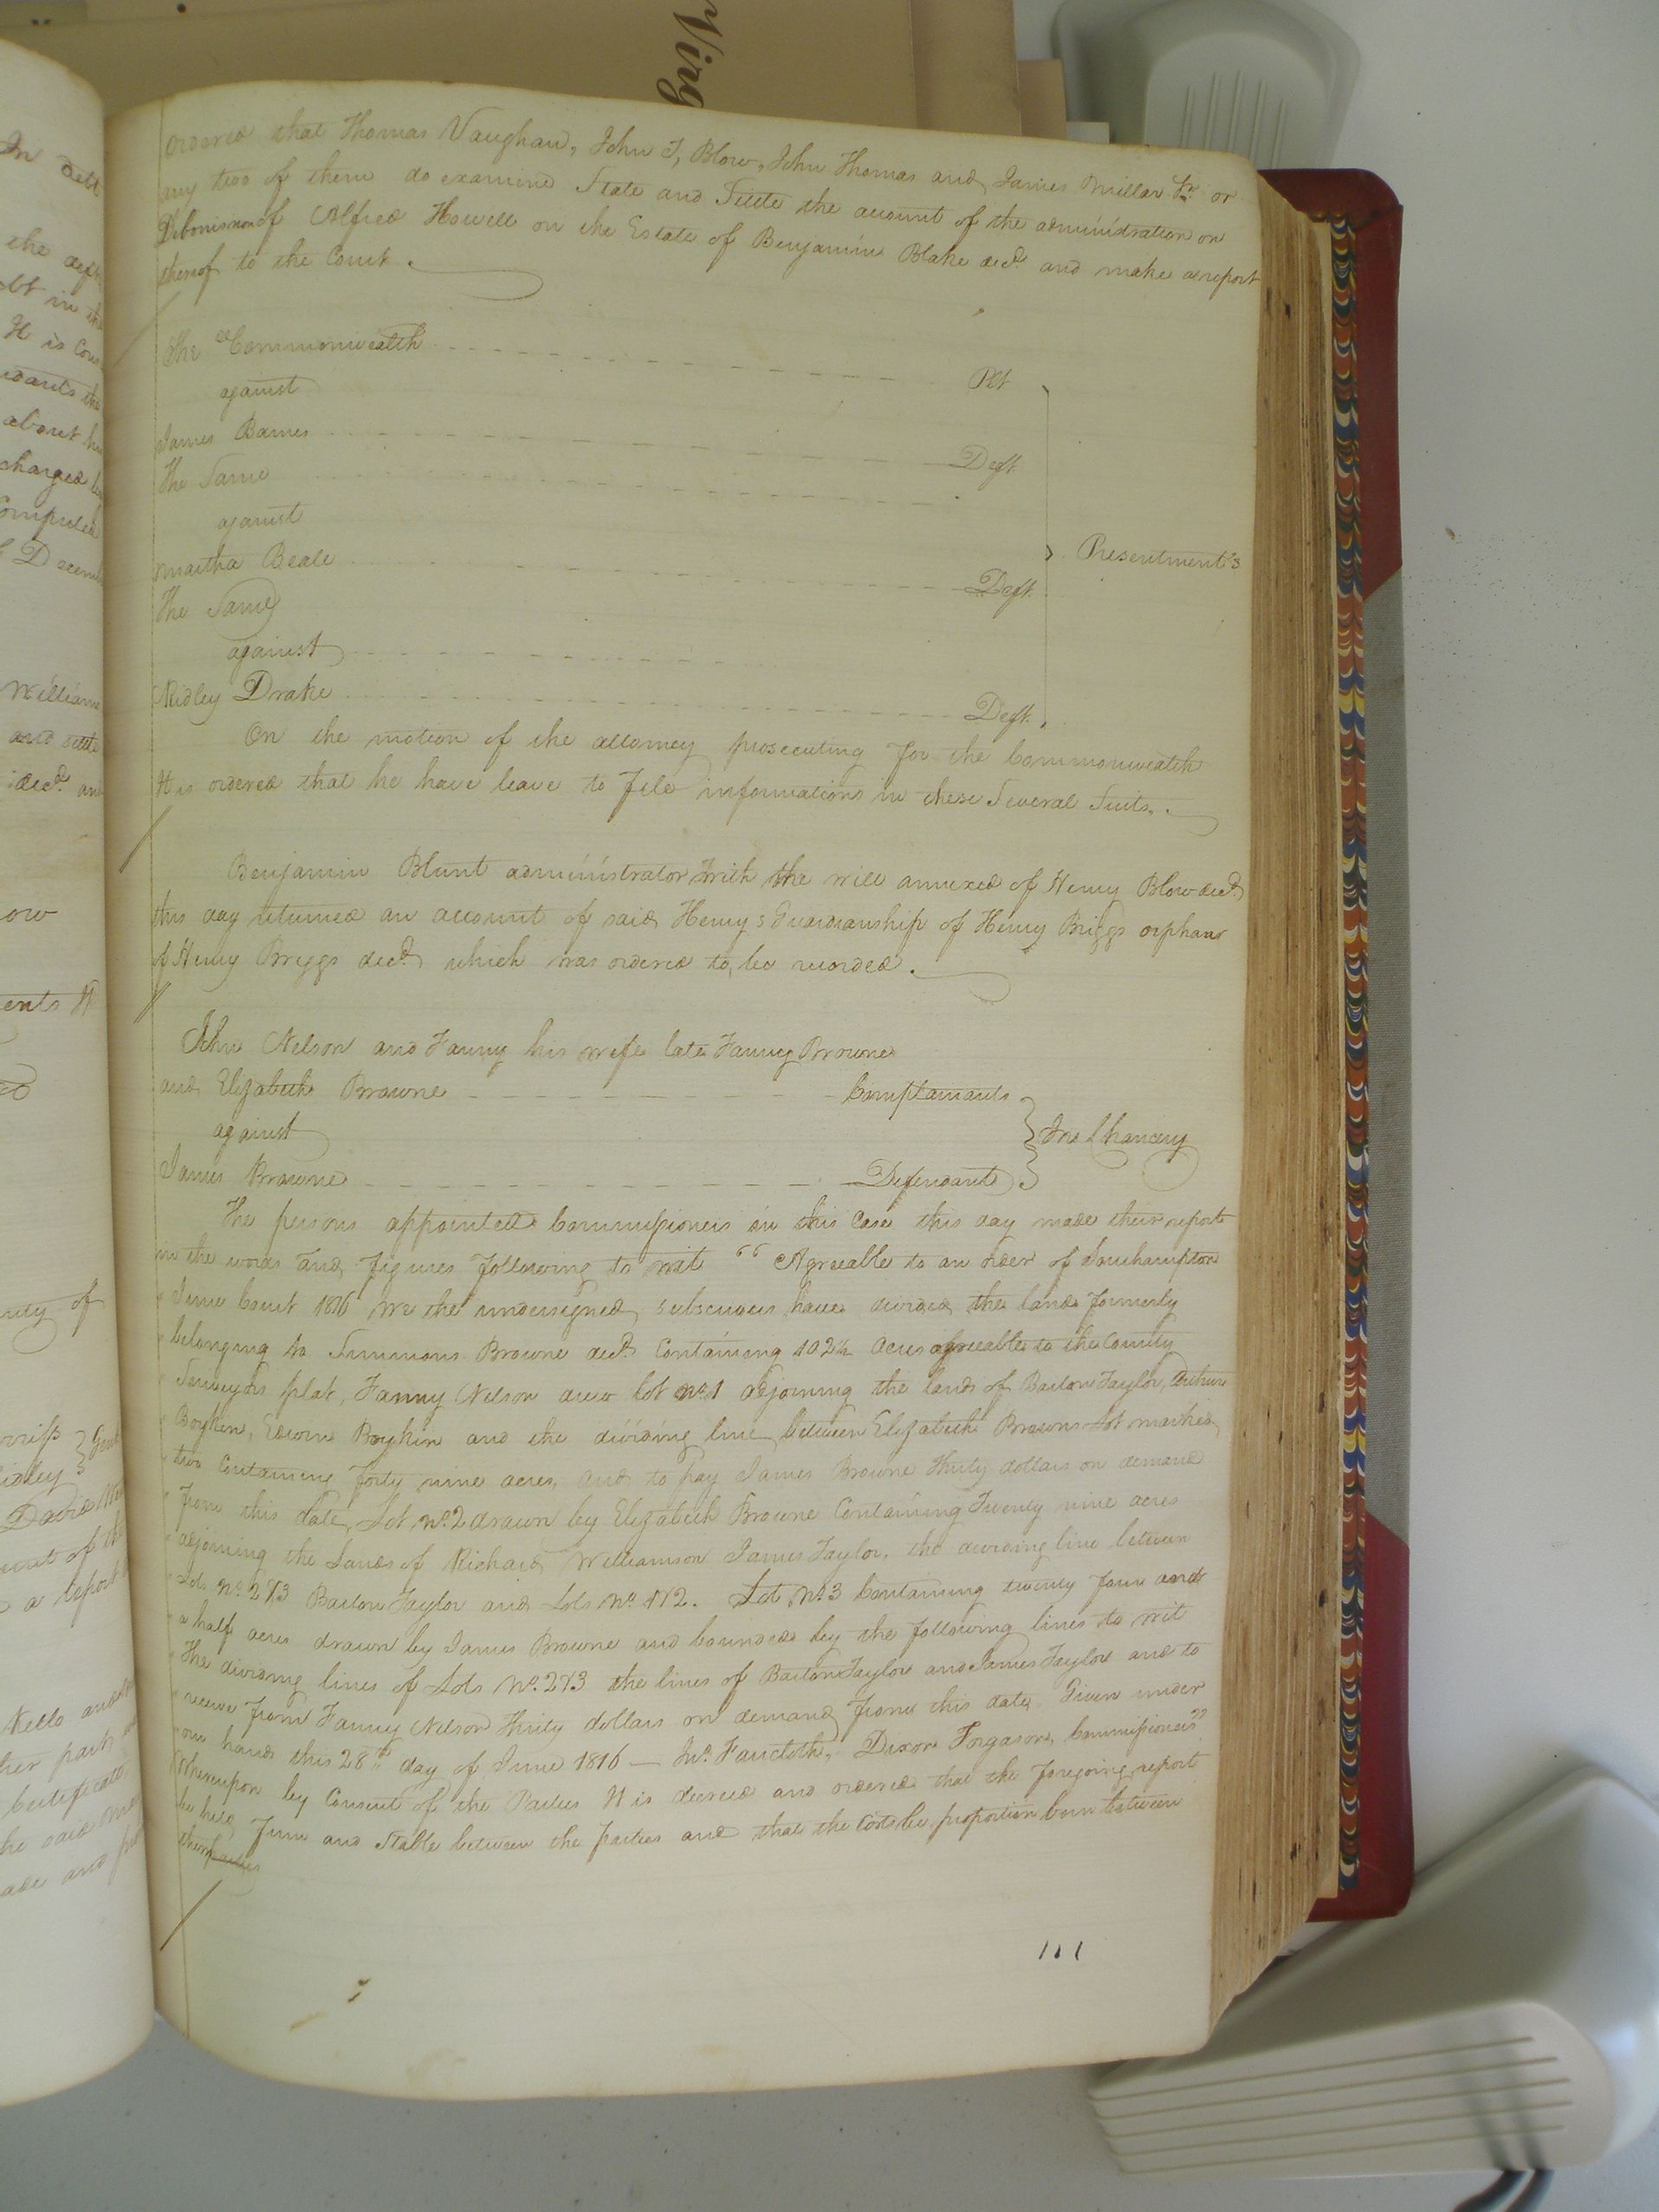 Virg
Ordered that Thomas Vaughan, John T, Blow, John Thomas and James Millar Jr. or
any two of them do examine State and Settle the account of the administration on
Debonis non of Alfred Howell on the Estate of Benjamin Blake decd. and make a report
thereof to the Court.
The Commonwealth Plt
against
James Barnes Deft.
The Same
against
Martha Beale Deft.
The Same
against
Ridley Drake Deft.
Presentment's
On the motion of the attorney prosecuting for the Commonwealth
It is ordered that he have leave to file informations in these Several Suits.
Benjamin Blunt administrator with the will annexed of Henry Blow decd.
this day returned an account of said Henry's Guardianship of Henry Briggs orphan
of Henry Briggs decd. which was ordered to be recorded.
John Nelson and Fanny his wife late Fanny Browne
and Elizabeth Browne Complainants
against
In Chancery
James Browne Defendant
The persons appointed Commissioners in this Case this day made their report
in the words and figures following to wit " Agreeable to an order of Southampton
" June Court 1816 we the undersigned subscribers have divided the lands formerly
" belonging to Simmons Browne decd. Containing 102½ acres agreeable to the County
" Surveyors plat, Fanny Nelson drew lot No. 1 adjoining the lands of Barton Taylor,
" Boykin, Edwin Boykin and the dividing line between Elizabeth Browns Lot marked
" two Containing forty nine acres, and to pay James Browne Thirty dollars on demand
" from this date, Lot No. 2 drawn by Elizabeth Browne Containing Twenty nine acres
" adjoining the Lands of Richard Williamson James Taylor, the dividing line between
" Lots No. 2 & 3 Barton Taylor and Lots No. 1 & 2. Lot No. 3 Containing twenty four and
" a half acres drawn by James Browne and bounded by the following lines to wit
" The dividing lines of Lots No. 2 & 3 the lines of Barton Taylor and James Taylor and to
" receive from Fanny Nelson Thirty dollars on demand from this date Given under
" our hands this 28th day of June 1816 — Jno. Faircloth, Dixon Forgason, Commissioners"
Whereupon by Consent of the Parties It is decreed and ordered that the foregoing report
be held Firm and Stable between the parties and that the Costs be proportion born between
them parties
111